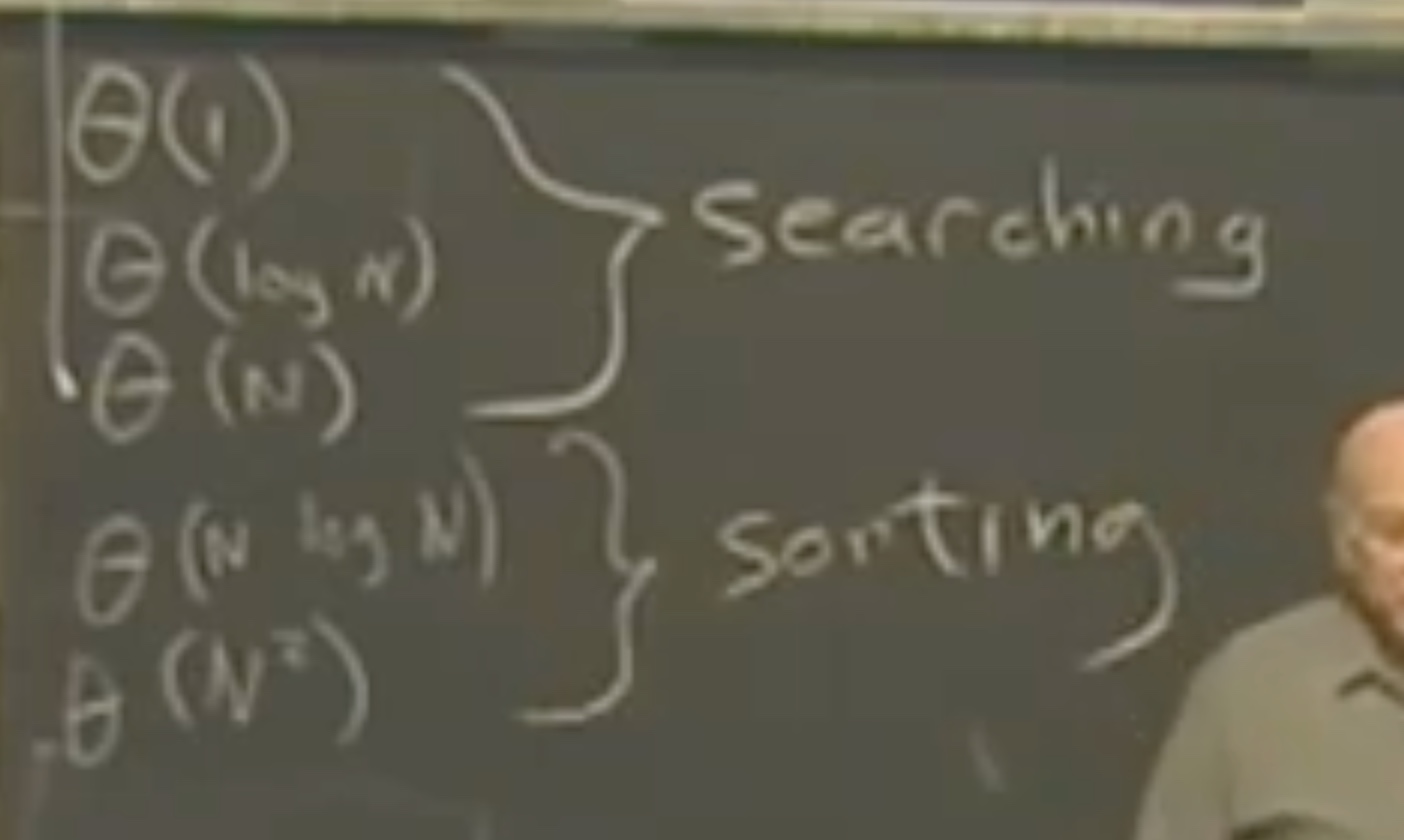 θ(1)
θ(log N)
θ(N)
searching
θ(N log N)
θ(N²)
sorting